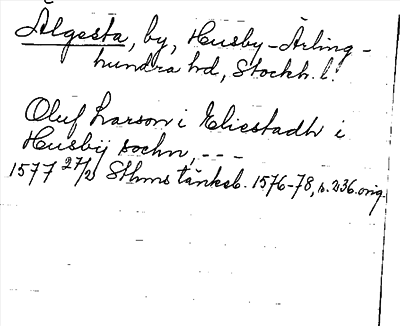 Älgesta, by, Husby-Ärling-
hundra hd, Stockh. l.
Oluf Larson i Eliestadh i
Husbij sochn, ---
1577 27/2 Sthms tänkeb. 1576-78, s. 236. orig.